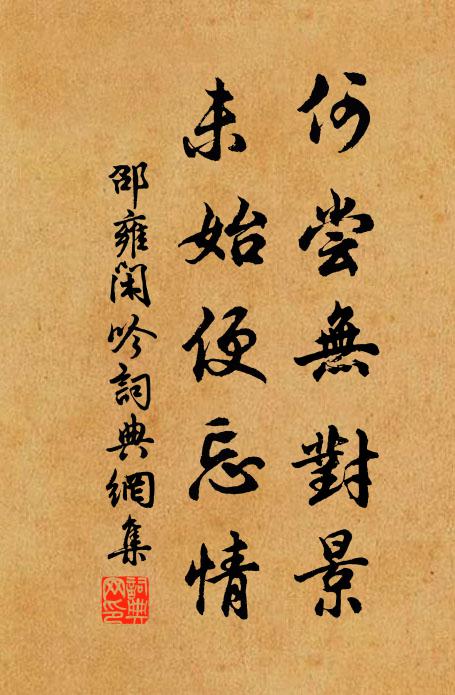 何尝無對景
未始便忘情
邵雍閑吟詞典網集
詞典网印